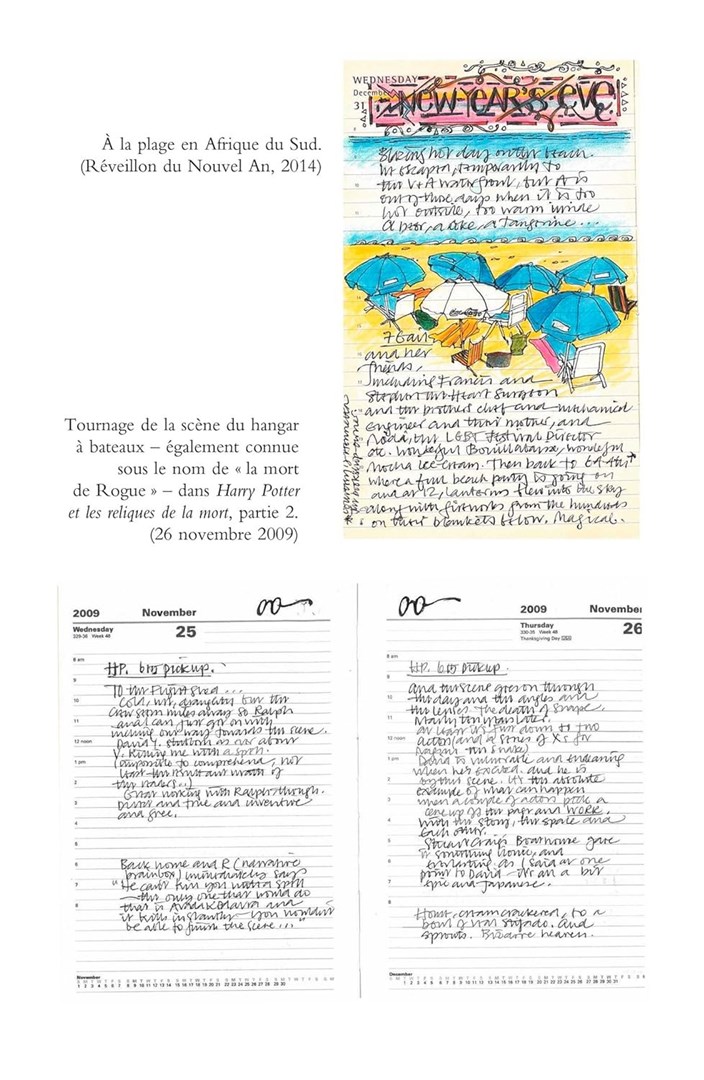 À la plage en Afrique du Sud.
(Réveillon du Nouvel An, 2014)
WEDNESDAY
December
31
NEW YEAR'S EVE
Blazing hot day on the beach.
We escaped, temporarily to
the V+A waterfront, but it is
one of those days when it is too
hot outside, too warm inside
A beer, a coke, a tangerine...
7
and her
friends,
including Francis and
Stephen the Heart Surgeon
and the brothers chef and mechanical
Engineer and their mother, and
the LGBT Festival Director
etc. Wonderful Bouillabaisse, wonderful
Mocha Ice-cream. Then back to
where a full beach party is going on
and at 12, lanterns flew into the sky
along with fireworks from the hundreds
on their blankets below. Magical.
Tournage de la scène du hangar
à bateaux – également connue
sous le nom de « la mort
de Rogue » – dans Harry Potter
et les reliques de la mort, partie 2.
(26 novembre 2009)
2009 November
Wednesday 25
329-36 Week 48
8 am
HP. 6.15 pick up.
9
To the Flight Shed ...
10
Cold, wet, draughty but the
crew seem miles away so Ralph
11
and I can just get on with
inching our way towards the scene.
12 noon
David Y. stubborn as ever about
V. killing me with a spell.
1 pm
(Impossible to comprehend, not
least the resultant wrath of
2
the readers...)
Great working with Ralph though.
3
Direct and true and inventive
and free.
4
5
6
Back home and R (narrative
brainbox) immediately says
7
"He can't kill you with a spell
– the only one that would do
8
that is Avada Kedavra and
it kills instantly – you wouldn't
be able to finish the scene..."
November
1 2 3 4 5 6 7 8 9 10 11 12 13 14 15 16 17 18 19 20 21 22 23 24 25 26 27 28 29 30
2009 November
Thursday 26
330-35 Week 48
Thanksgiving Day
8 am
HP. 6.15 pickup.
9
And the scene goes on through
10
the day and the angles and
the lenses. The death of Snape.
11
Nearly ten years later.
At least it's just down to two
12 noon
actors (and a series of Xs for
the snake)
1 pm
David is vulnerable and endearing
when he's excited. And he is
2
by this scene. It's the absolute
example of what can happen
3
when a couple of actors pick a
scene up off the page and WORK.
4
with the story, the space and
each other.
5
Stuart Craig's Boathouse gave
it something ironic, and
6
everlasting as I said at one
point to David – It's all a bit
7
epic and Japanese.
8
Home, creamcrackered, to a
bowl of veal stifado. And
sprouts. Bizarre heaven.
December
1 2 3 4 5 6 7 8 9 10 11 12 13 14 15 16 17 18 19 20 21 22 23 24 25 26 27 28 29 30 31